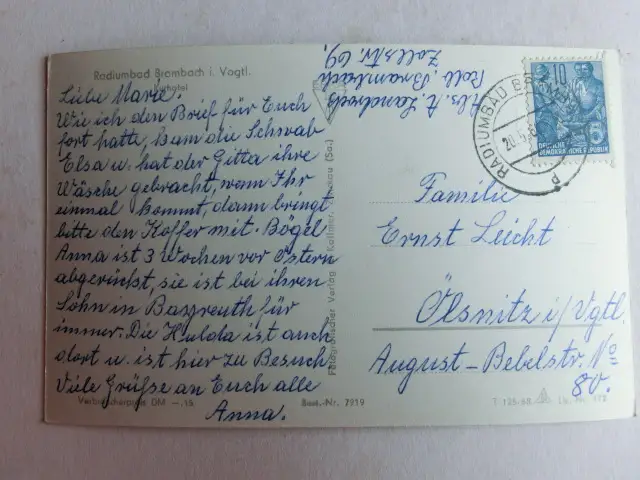 Radiumbad Brambach i. Vogtl.
Liebe Marie.
Wie ich den Brief für Euch
fort hatte, kam die Schwab
Elsa u. hat der Gitta ihre
Wäsche gebracht, wenn Ihr
einmal kommt, dann bringt
bitte den Koffer mit. Bögel
Anna ist 3 Wochen vor Ostern
abgerückt, sie ist bei ihren
Sohn in Bayreuth für
immer. Die Hulda ist auch
dort u. ist hier zu Besuch
Viele Grüße an Euch alle
Anna.
Verbraucherpreis DM -.15
Best.-Nr. 7919
Fotografischer Verlag Kallmer, (Sa.)
Abs. A.
Rdb. Brambach
Zollstr. 69.
10
DEUTSCHE
DEMOKRATISCHE REPUBLIK
RADIUMBAD
20.5.
Familie
Ernst Leicht
Ölsnitz i/Vgtl.
August-Bebelstr. No
80.